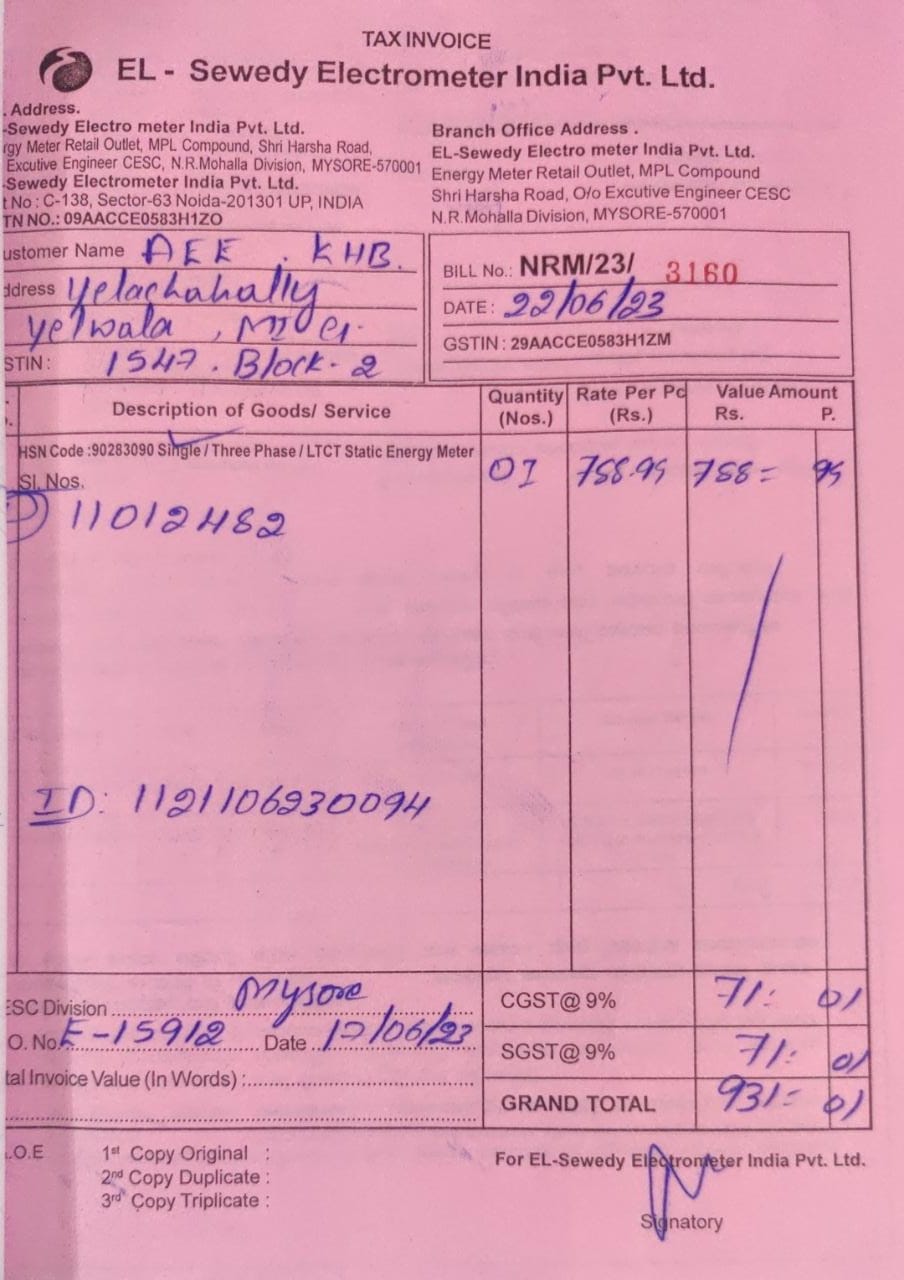 TAX INVOICE
EL - Sewedy Electrometer India Pvt. Ltd.
. Address.
-Sewedy Electro meter India Pvt. Ltd.
rgy Meter Retail Outlet, MPL Compound, Shri Harsha Road,
Excutive Engineer CESC, N.R.Mohalla Division, MYSORE-570001
Sewedy Electrometer India Pvt. Ltd.
t No : C-138, Sector-63 Noida-201301 UP, INDIA
TN NO.: 09AACCE0583H1ZO
Branch Office Address .
EL-Sewedy Electro meter India Pvt. Ltd.
Energy Meter Retail Outlet, MPL Compound
Shri Harsha Road, O/o Excutive Engineer CESC
N.R.Mohalla Division, MYSORE-570001
ustomer Name AEE . KHB.
ddress Yelachahally
Yelwala ,
STIN : 1547 . Block - 2
BILL No.: NRM/23/ 3160
DATE : 22/06/23
GSTIN : 29AACCE0583H1ZM
Description of Goods/ Service
Quantity (Nos.)
Rate Per Pc (Rs.)
Value Amount
Rs. P.
HSN Code :90283090 Single / Three Phase / LTCT Static Energy Meter
01 788.99 788 = 99
Sl. Nos.
1) 11012482
ID: 1121106230094
ESC Division Mysore
O. No. E-15912 Date 17/06/23
tal Invoice Value (In Words) :
CGST@ 9% 71: 01
SGST@ 9% 71: 01
GRAND TOTAL 931= 01
.O.E
1st Copy Original :
2nd Copy Duplicate :
3rd Copy Triplicate :
For EL-Sewedy Electrometer India Pvt. Ltd.
Signatory